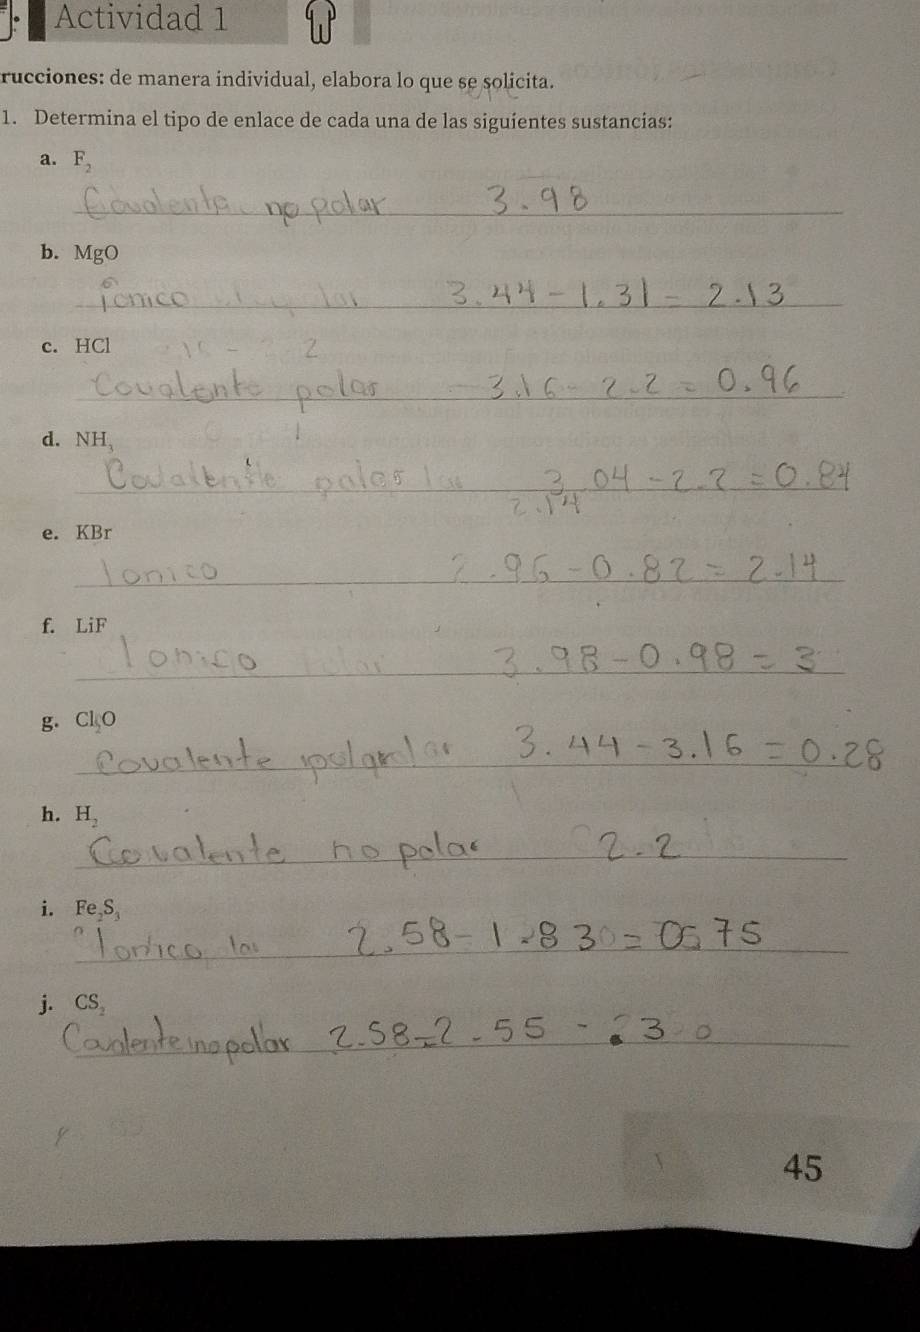 Actividad 1
rucciones: de manera individual, elabora lo que se solicita.
1. Determina el tipo de enlace de cada una de las siguientes sustancias:
a. F₂
Covalente no polar 3.98
b. MgO
ionico 3.44 - 1.31 = 2.13
c. HCl
Covalente polar 3.16 - 2.2 = 0.96
d. NH₃
Covalente polar 3.04 - 2.2 = 0.84
2.14
e. KBr
Ionico 2.96 - 0.82 = 2.14
f. LiF
Ionico 3.98 - 0.98 = 3
g. Cl₂O
Covalente polar 3.44 - 3.16 = 0.28
h. H₂
Covalente no polar 2.2
i. Fe₂S₃
Ionico 2.58 - 1.83 = 0.75
j. CS₂
Covalente no polar 2.58 - 2.55
45